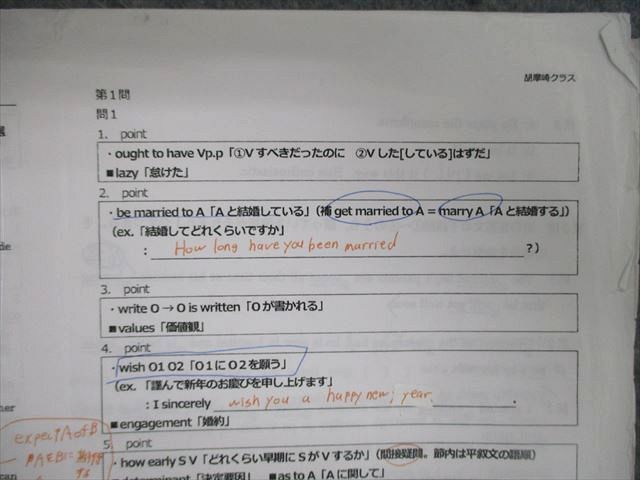 胡摩崎クラス
第1問
問1
1. point
・ought to have Vp.p「①Vすべきだったのに ②Vした[している]はずだ」
■lazy「怠けた」
2. point
・be married to A「Aと結婚している」（補 get married to A = marry A「Aと結婚する」）
(ex.「結婚してどれくらいですか」
: How long have you been married ?)
3. point
・write O → O is written「Oが書かれる」
■values「価値観」
4. point
・wish O1 O2「O1にO2を願う」
(ex.「謹んで新年のお慶びを申し上げます」
: I sincerely wish you a happy new year.
■engagement「婚約」
5. point
・how early S V「どれくらい早期にSがVするか」（間接疑問。節内は平叙文の語順）
■determinant「決定要因」 ■as to A「Aに関して」
expect A of B